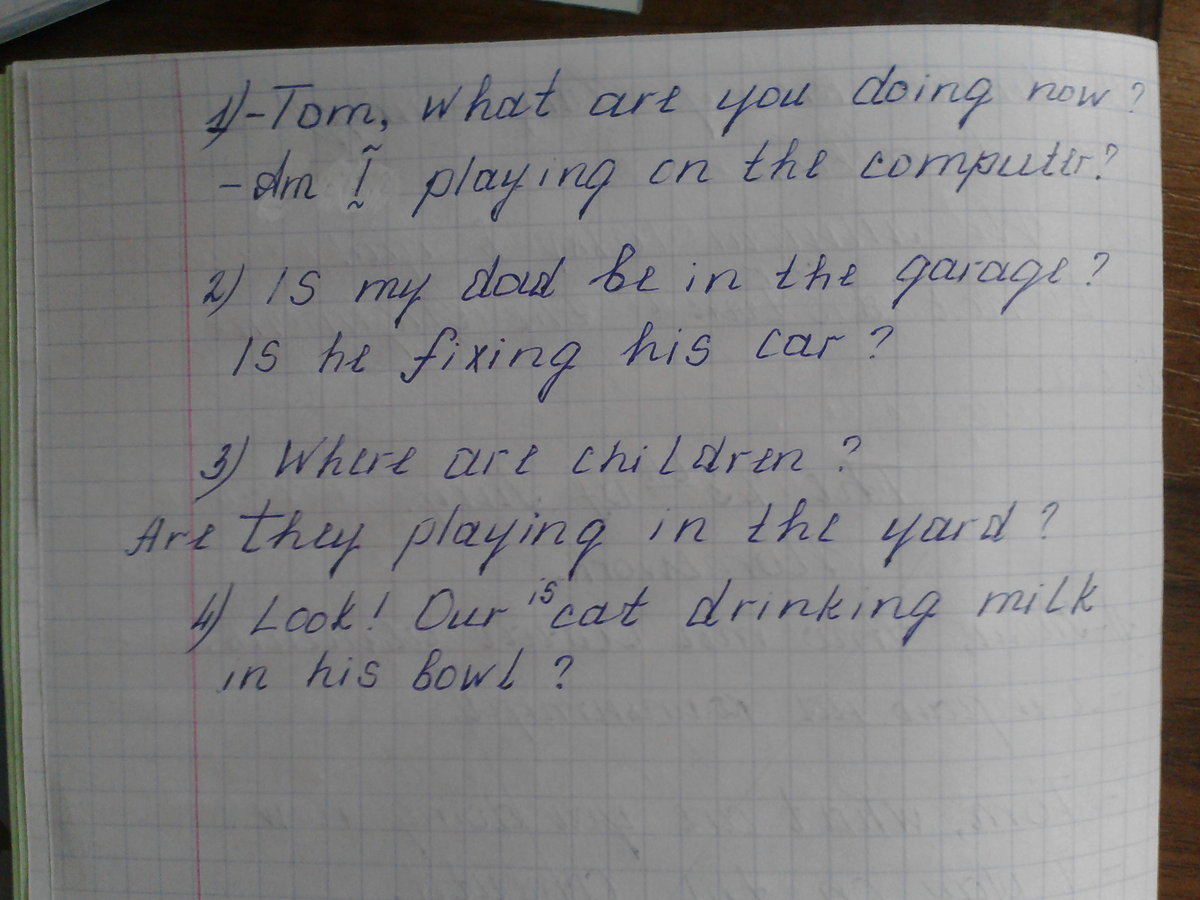 1) - Tom, what are you doing now?
- Am I playing on the computer?
2) Is my dad be in the garage?
Is he fixing his car?
3) Where are children?
Are they playing in the yard?
4) Look! Our is cat drinking milk
in his bowl?